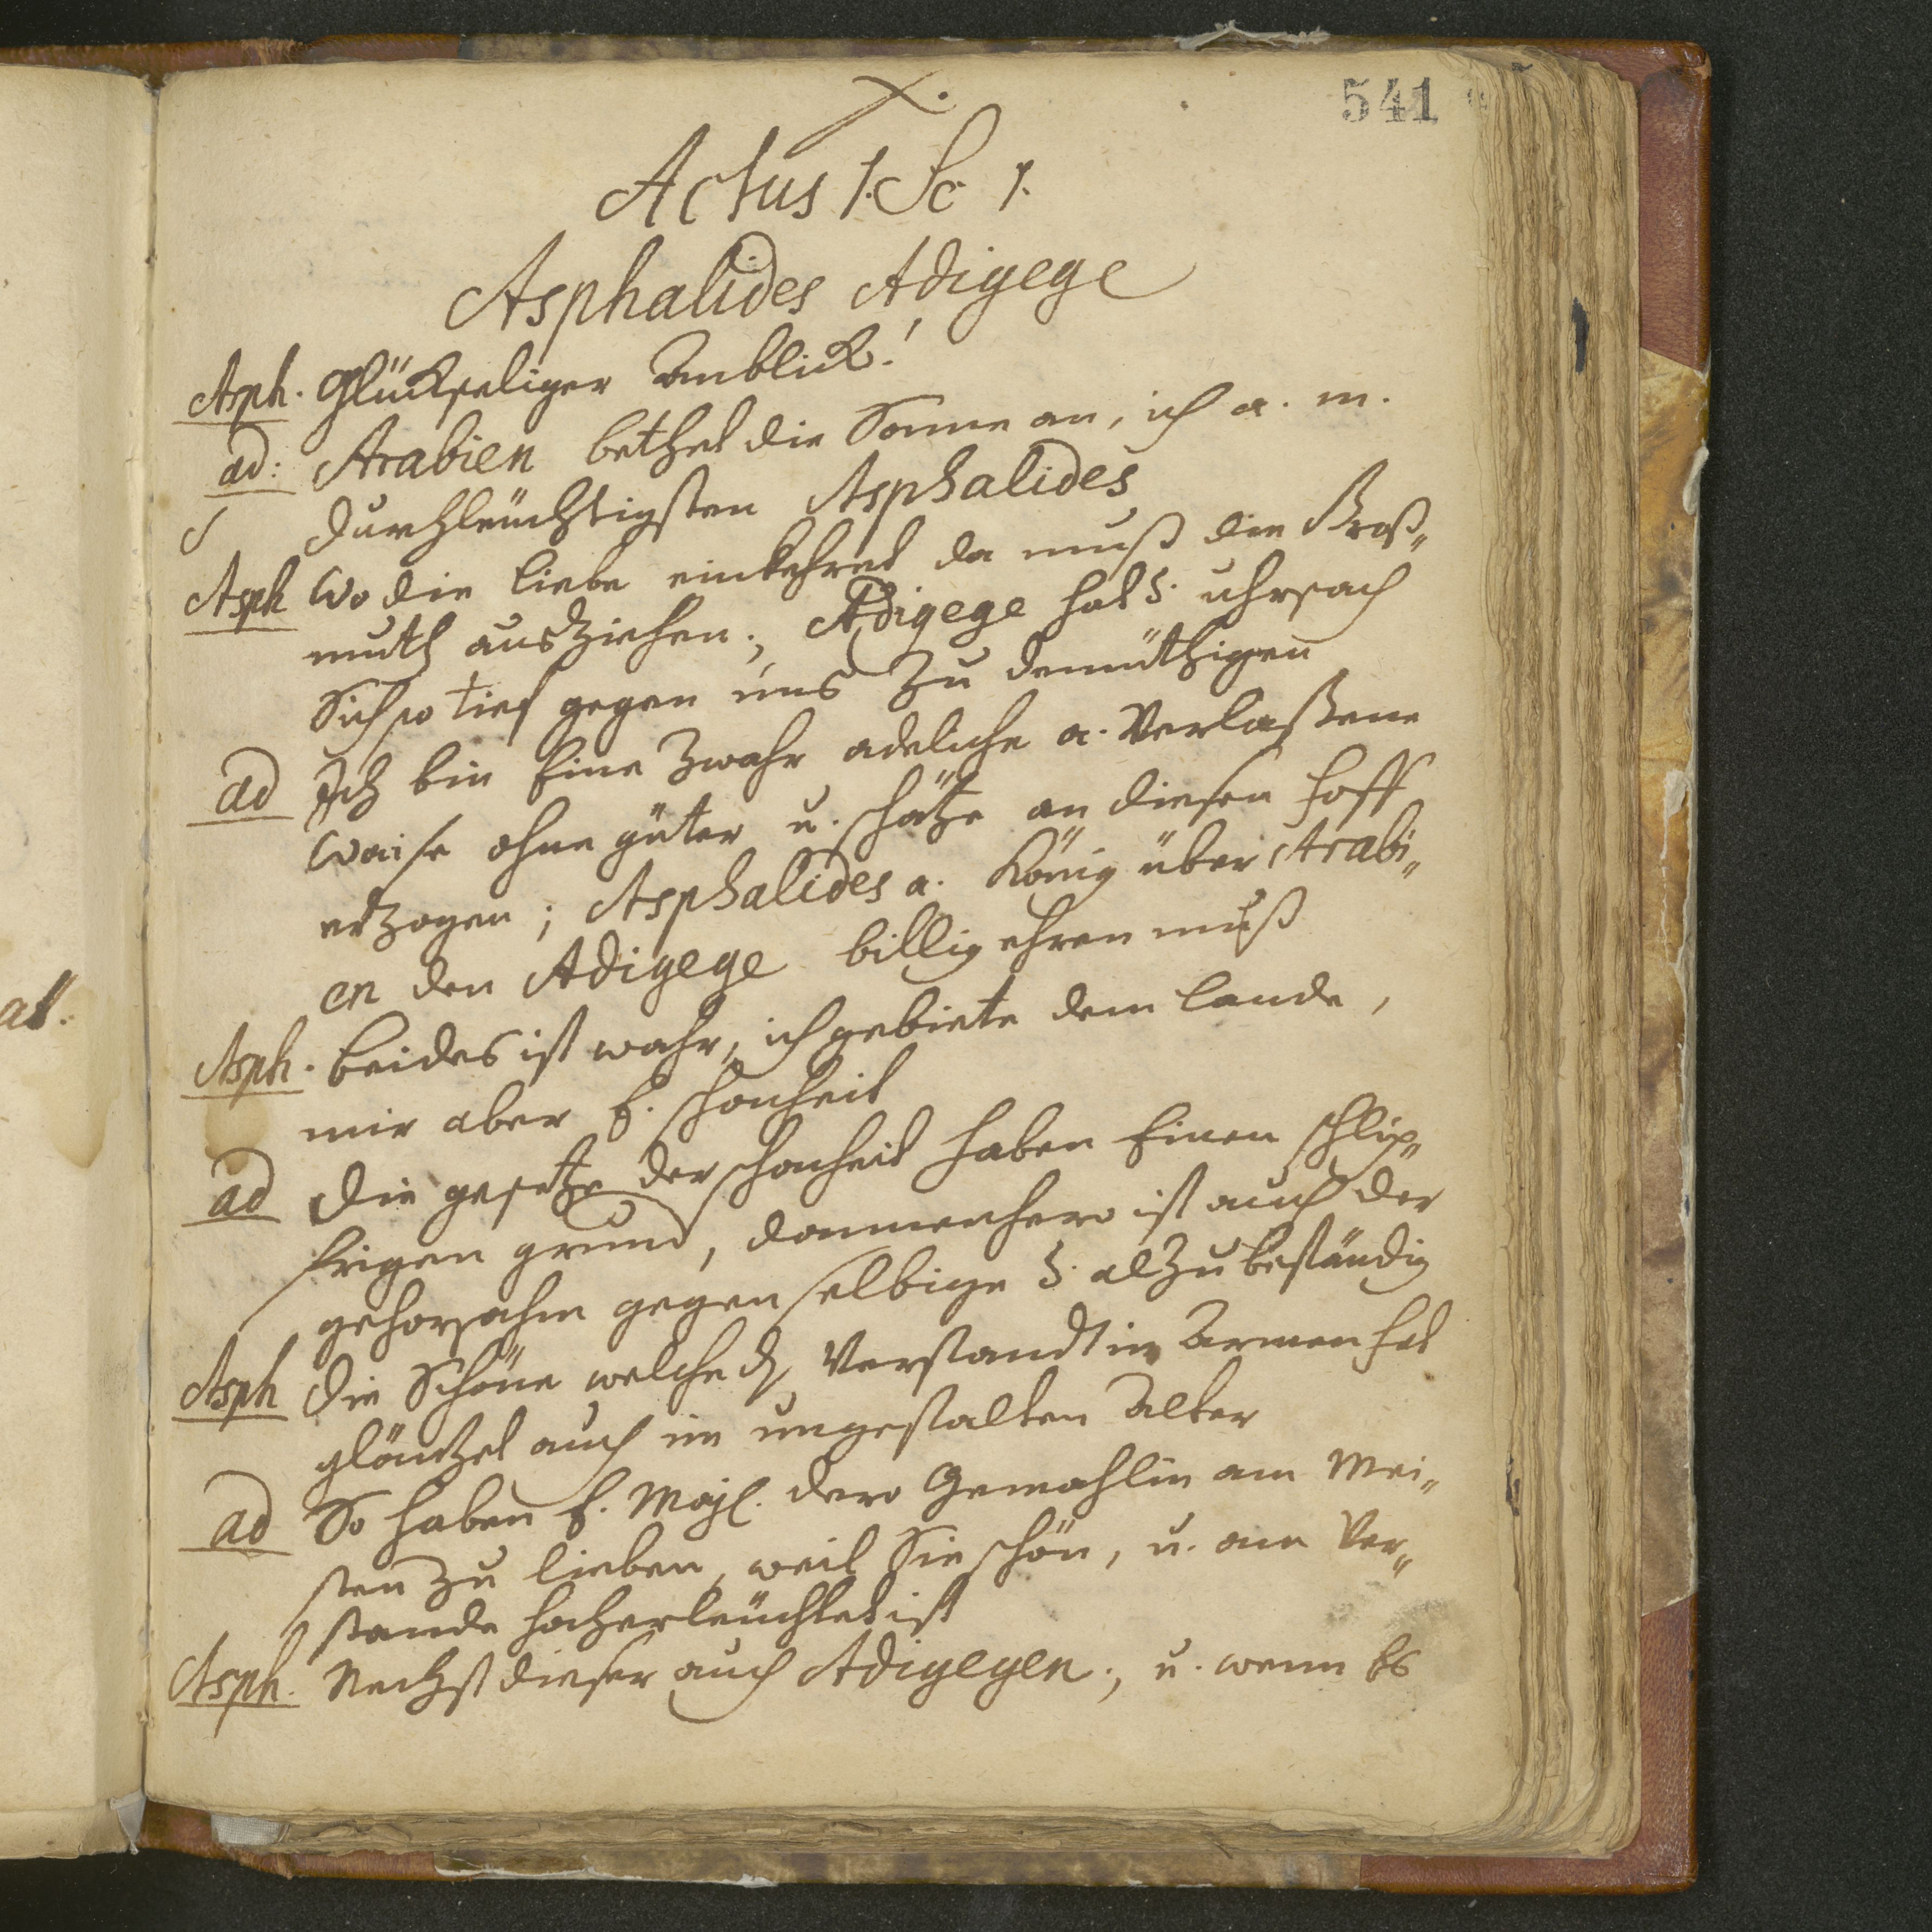 541
X.
Actus 1. Sc 1.
Asphalides Adigege
Asph. Glückseliger Anblick!
ad: Arabien bethet die Sonne an, ich a. m.
durchleüchtigsten Asphalides
Asph Wo die liebe einkehret da muß die Groß„
muth ausziehen; Adigege hat uhrsach
Sich so tief gegen uns zu demüthigen
ad Ich bin Eine zwahr adeliche a. Verlaßene
Waise ohne güter u. schätze an diesen Hoff
erzogen; Asphalides a. König über Arabi„
en den Adigege billig ehren muß
Asph. beides ist wahr, ich gebiete dem lande,
mir aber E. schonheit
ad Die gesetze der schonheit haben Einen schlip„
frigen grund, dannenhero ist auch der
gehorsahm gegen selbige alzu beständig
Asph Die Schöne welche Verstandt in Armen hat
gläntzet auch im ungestalten Alter
ad So haben E. Majt. dero Gemahlin am Mei„
sten zu lieben, weil Sie schön, u. am Ver„
stande hocherleüchtet ist
Asph. Nechst dieser auch Adigegen; u. wenn Es